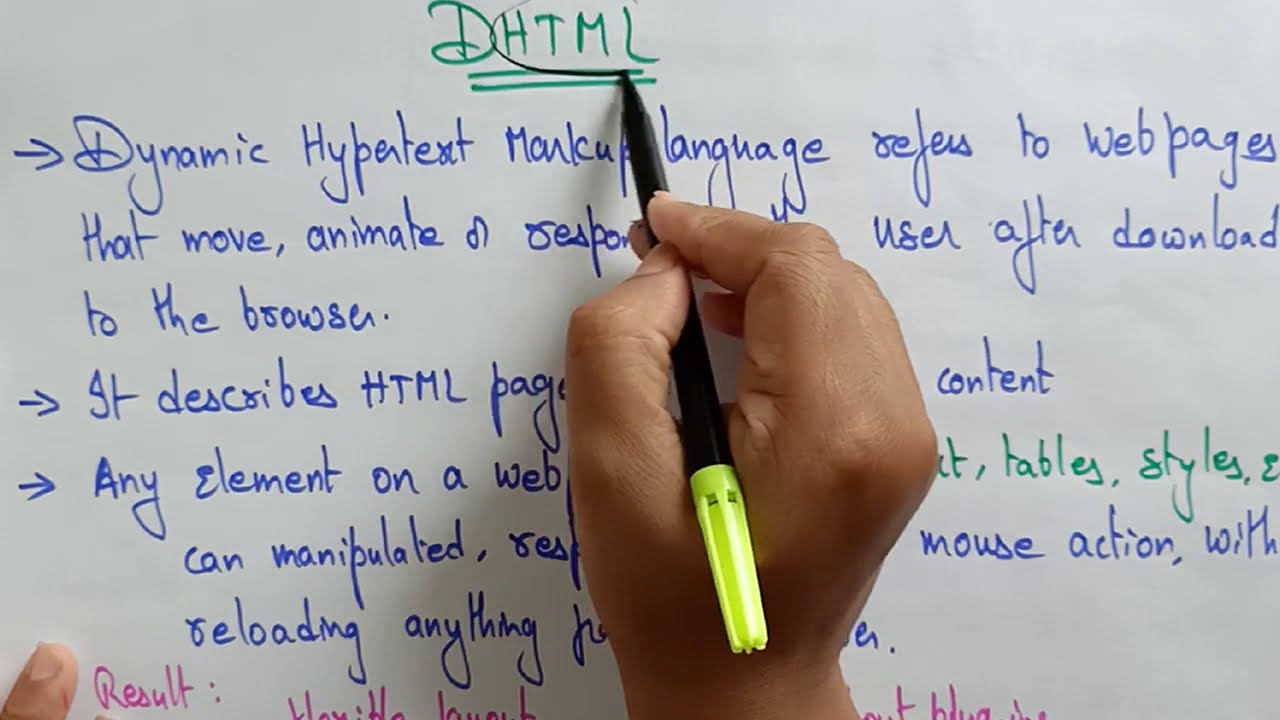 DHTML
→ Dynamic Hypertext Markup language refers to webpages
that move, animate or user after download
to the browser.
→ It describes HTML content
→ Any Element on a web tables, styles,
can manipulated, mouse action, with
reloading anything
Result: flexible layout